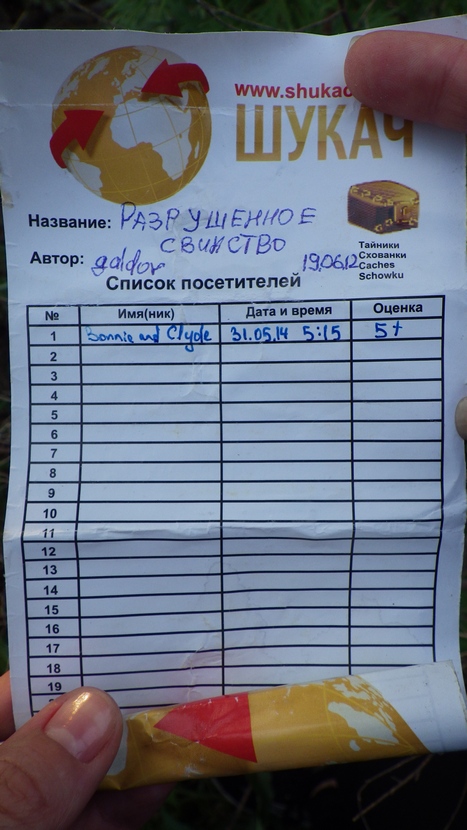 www.shukac
ШУКАЧ
Название: РАЗРУШЕННОЕ
СВИНСТВО
Автор: galdor 19.06.12
Тайники
Схованки
Caches
Schowku
Список посетителей
№ Имя(ник) Дата и время Оценка
1 Bonnie and Clyde 31.05.14 5:15 5+
2
3
4
5
6
7
8
9
10
11
12
13
14
15
16
17
18
19